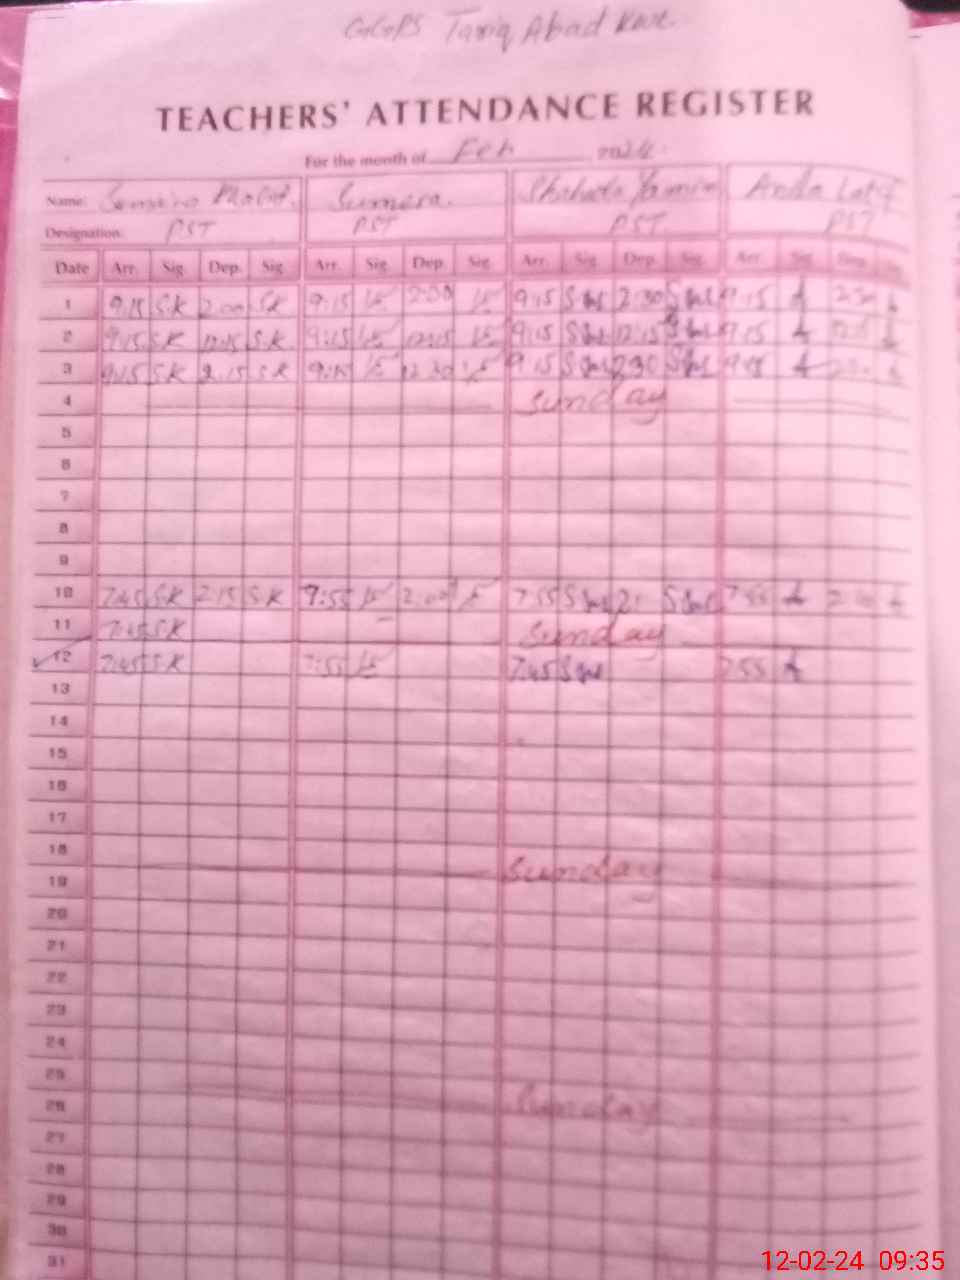 GGPS Tariq Abad
TEACHERS' ATTENDANCE REGISTER
For the month of Feb 2024
Name: Sumera. Shahida Yamin
Designation: PST PST PST PST
Date Arr. Sig Dep. Sig Arr. Sig Dep Sig Arr. Sig Dep. Sig Arr. Sig Dep. Sig
1 9:15 SK 2:00 SK 9:15 2:30 9:15 2:30 9:15
2 9:15 SK 12:15 SK 9:15 12:15 9:15 12:15 9:15
3 9:15 SK 2:15 SK 9:15 12:30 9:15 2:30
4 Sunday
5
6
7
8
9
10 7:45 SK 2:15 SK 7:55 2:00 7:55 7:55
11 7:45 SK Sunday
12 7:45 SK 7:55 7:45 7:55
13
14
15
16
17
18 Sunday
19
20
21
22
23
24
25
26 Sunday
27
28
29
30
31
12-02-24 09:35